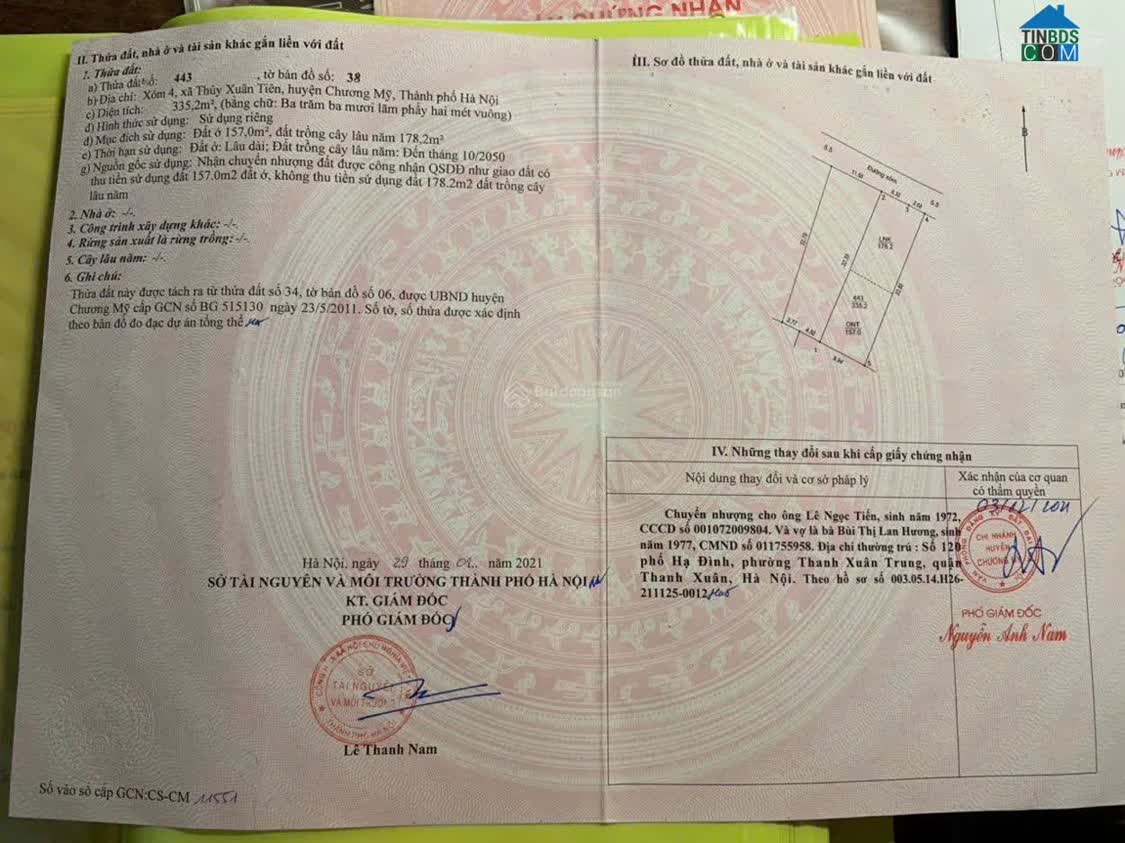 CHỨNG NHẬN
TINBDS
COM
II. Thửa đất, nhà ở và tài sản khác gắn liền với đất
1. Thửa đất:
a) Thửa đất số: 443 , tờ bản đồ số: 38
b) Địa chỉ: Xóm 4, xã Thủy Xuân Tiên, huyện Chương Mỹ, Thành phố Hà Nội
c) Diện tích: 335,2m², (bằng chữ: Ba trăm ba mươi lăm phẩy hai mét vuông)
d) Hình thức sử dụng: Sử dụng riêng
đ) Mục đích sử dụng: Đất ở 157,0m², đất trồng cây lâu năm 178,2m²
e) Thời hạn sử dụng: Đất ở: Lâu dài; Đất trồng cây lâu năm: Đến tháng 10/2050
g) Nguồn gốc sử dụng: Nhận chuyển nhượng đất được công nhận QSDĐ như giao đất có
thu tiền sử dụng đất 157.0m2 đất ở, không thu tiền sử dụng đất 178.2m2 đất trồng cây
lâu năm
2. Nhà ở: -/-.
3. Công trình xây dựng khác: -/-.
4. Rừng sản xuất là rừng trồng: -/-.
5. Cây lâu năm: -/-.
6. Ghi chú:
Thửa đất này được tách ra từ thửa đất số 34, tờ bản đồ số 06, được UBND huyện
Chương Mỹ cấp GCN số BG 515130 ngày 23/5/2011. Số tờ, số thửa được xác định
theo bản đồ đo đạc dự án tổng thể
Batdongsan
Hà Nội, ngày 29 tháng 01 năm 2021
SỞ TÀI NGUYÊN VÀ MÔI TRƯỜNG THÀNH PHỐ HÀ NỘI
KT. GIÁM ĐỐC
PHÓ GIÁM ĐỐC
SỞ
TÀI NGUYÊN
VÀ MÔI TRƯỜNG
THÀNH PHỐ HÀ NỘI
Lê Thanh Nam
Số vào sổ cấp GCN:CS-CM 11551
III. Sơ đồ thửa đất, nhà ở và tài sản khác gắn liền với đất
B
5.5
Đường xóm
5.5
2
3
4
LNK
178.2
443
335.2
ONT
157.0
1
5
IV. Những thay đổi sau khi cấp giấy chứng nhận
Nội dung thay đổi và cơ sở pháp lý
Xác nhận của cơ quan
có thẩm quyền
Chuyển nhượng cho ông Lê Ngọc Tiến, sinh năm 1972,
CCCD số 001072009804. Và vợ là bà Bùi Thị Lan Hương, sinh
năm 1977, CMND số 011755958. Địa chỉ thường trú : Số 120
phố Hạ Đình, phường Thanh Xuân Trung, quận
Thanh Xuân, Hà Nội. Theo hồ sơ số 003.05.14.H26-
211125-0012
03/12/2021
CHI NHÁNH
HUYỆN
CHƯƠNG
PHÓ GIÁM ĐỐC
Nguyễn Anh Nam